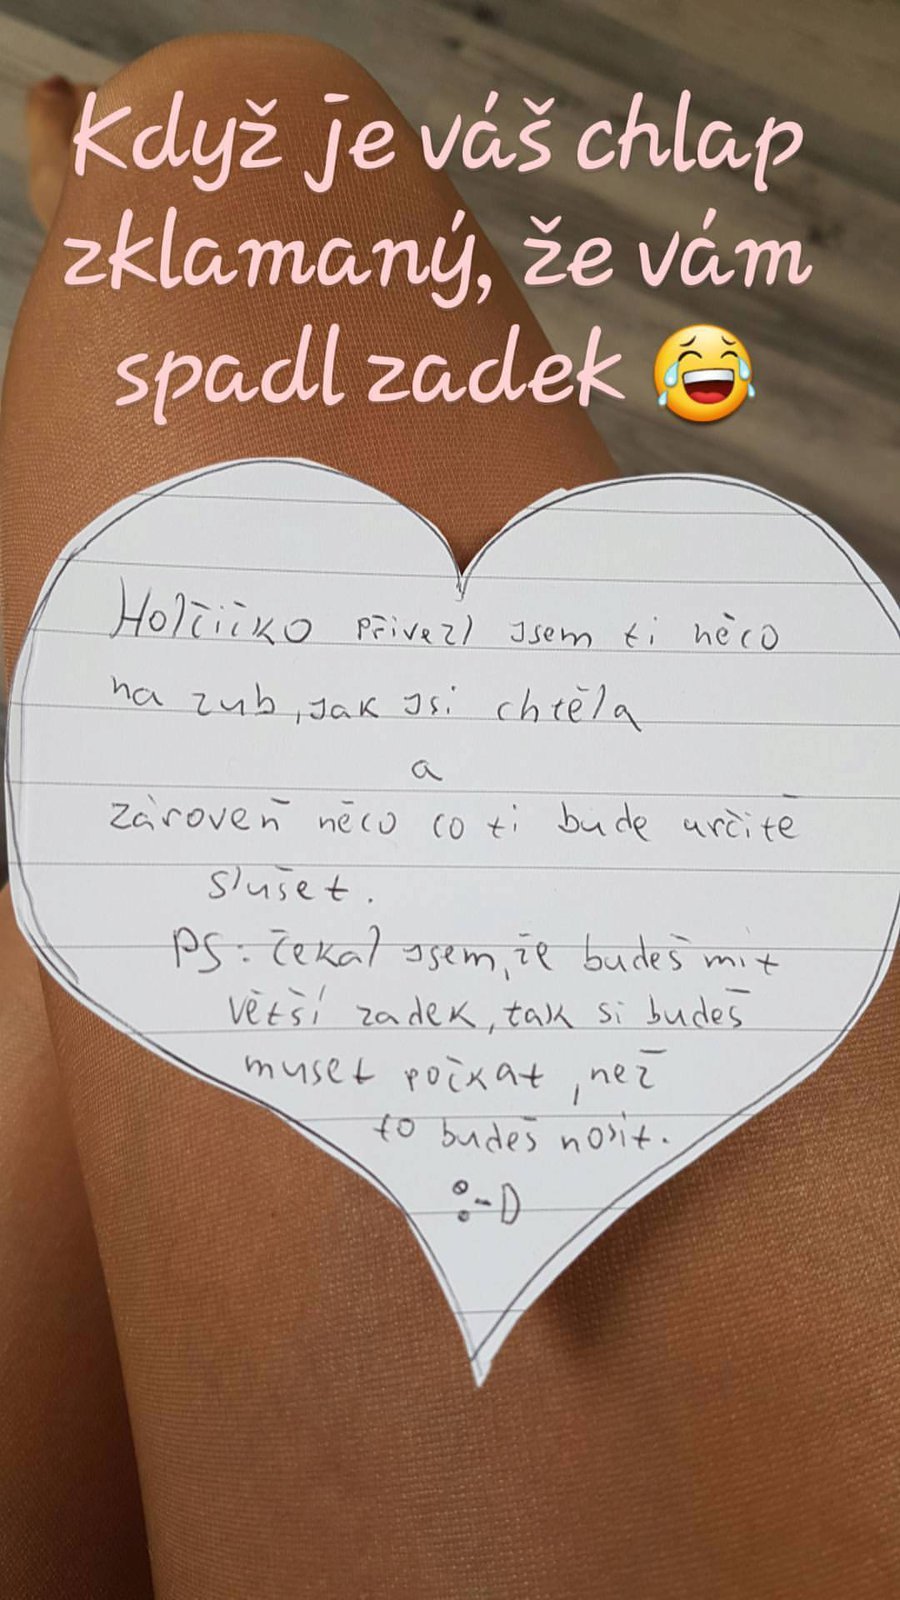 Když je váš chlap
zklamaný, že vám
spadl zadek 😂
Holčičko přivezl jsem ti něco
na zub, jak jsi chtěla
a
zároveň něco co ti bude určitě
slušet.
PS: čekal jsem, že budeš mit
větší zadek, tak si budeš
muset počkat, než
to budeš nosit.
:-D